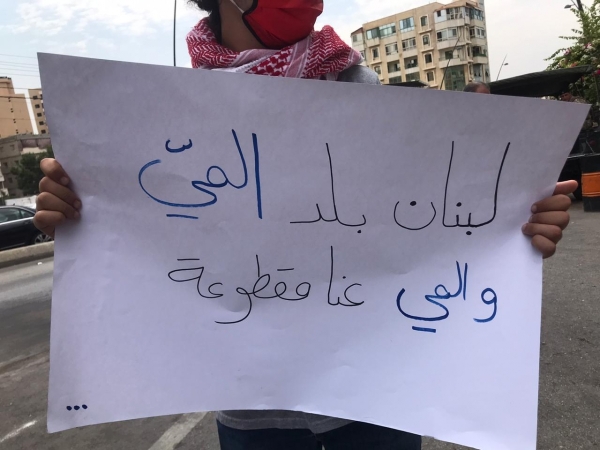 لبنان بلد الميّ
والمي عنا مقطوعة
...